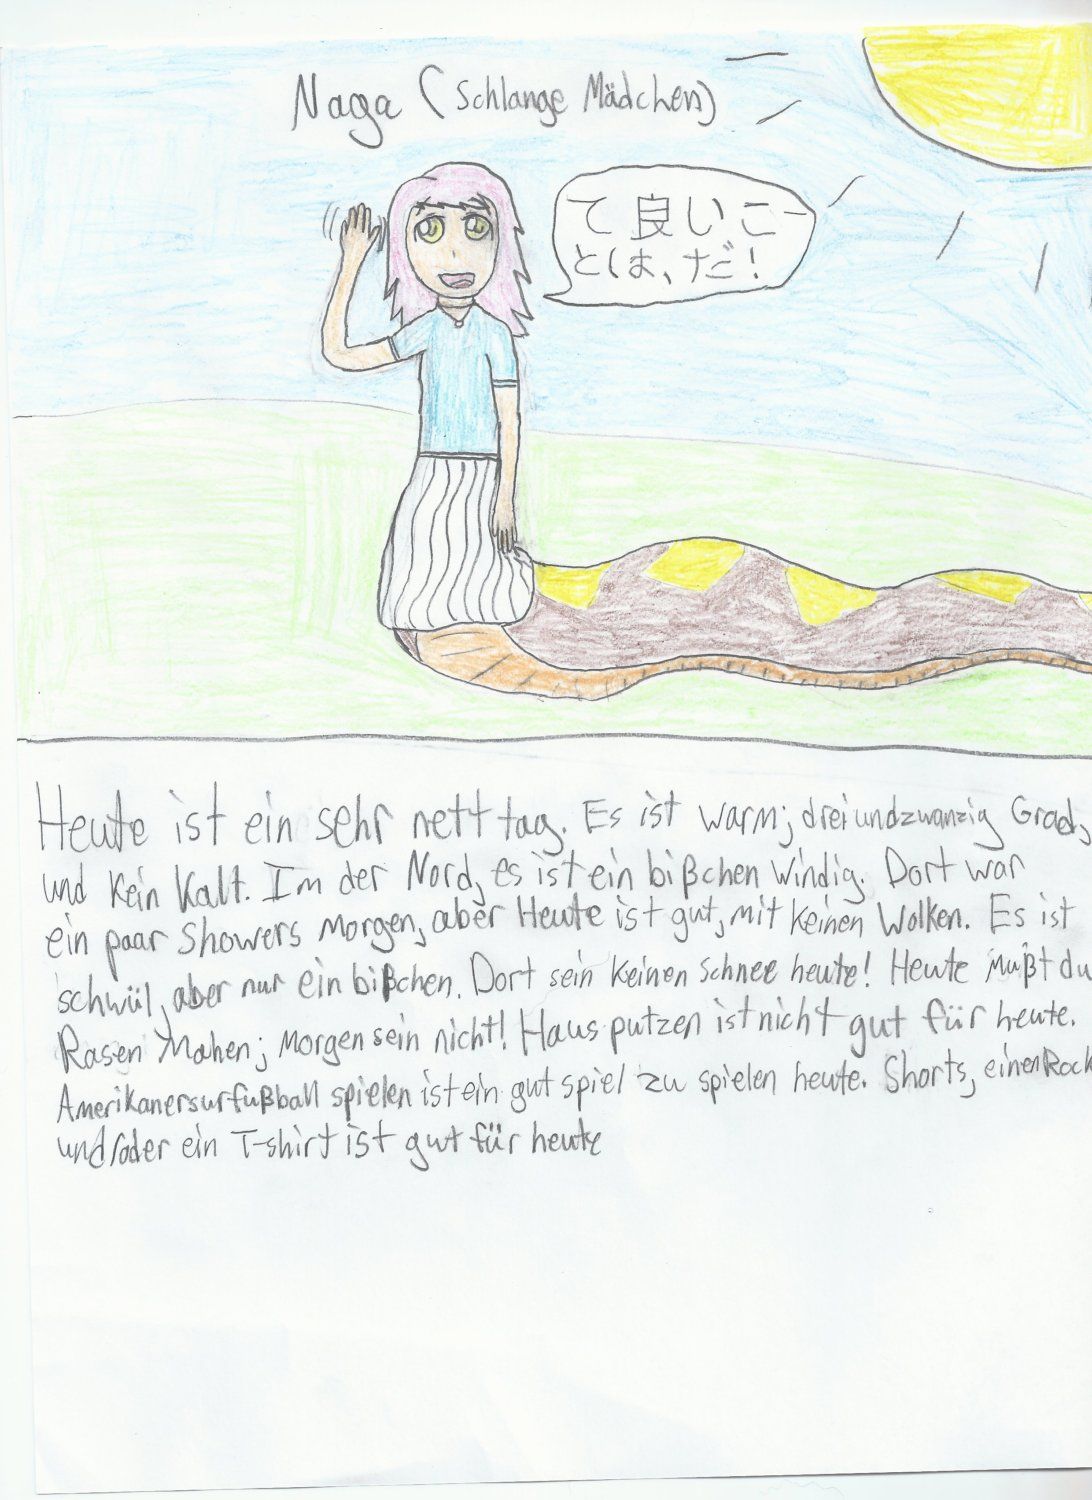 Naga (Schlange Mädchen)
て良いこ-
とは、だ!
Heute ist ein sehr nett tag. Es ist warm; dreiundzwanzig Grad,
und kein Kalt. Im der Nord, es ist ein bißchen windig. Dort war
ein paar showers morgen, aber Heute ist gut, mit keinen Wolken. Es ist
schwül, aber nur ein bißchen. Dort sein keinen schnee heute! Heute mußt du
Rasen Mahen; morgen sein nicht! Haus putzen ist nicht gut für heute.
Amerikanersurfußball spielen ist ein gut spiel zu spielen heute. Shorts, einen Rock
und/oder ein T-shirt ist gut für heute